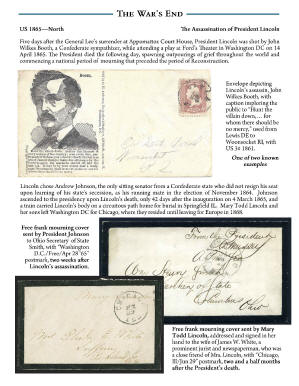 THE WAR'S END
US 1865—North The Assassination of President Lincoln
Five days after the General Lee's surrender at Appomattox Court House, President Lincoln was shot by
John Wilkes Booth, a Confederate sympathizer, while attending a play at Ford's Theater in Washington DC on 14
April 1865. The President died the following day, spawning outpourings of grief throughout the world and
commencing a national period of mourning that preceded the period of Reconstruction.
BOOTH.
Envelope depicting
Lincoln's assassin, John
Wilkes Booth, with
caption imploring the
public to "Hunt the
villain down, … for
whom there should be
no mercy," used from
Lewis DE to
Woonsocket RI, with
US 3¢ 1861.
One of two known
examples
Lincoln chose Andrew Johnson, the only sitting senator from a Confederate state who did not resign his seat
upon learning of his state's secession, as his running mate in the election of November 1864. Johnson
ascended to the presidency upon Lincoln's death, only 42 days after the inauguration of 4 March 1865, and
a train carried Lincoln's body on a circuitous path home for burial in Springfield IL. Mary Todd Lincoln and
her sons left Washington DC for Chicago, where they resided until leaving for Europe in 1868.
Free frank mourning cover
sent by President Johnson
to Ohio Secretary of State
Smith, with "Washington
D.C./Free/Apr 28'65"
postmark, two weeks after
Lincoln's assassination.
From the President
Columbus
Ohio
Free frank mourning cover sent by Mary
Todd Lincoln, addressed and signed in her
hand to the wife of James W. White, a
prominent jurist and newspaperman, who was
a close friend of Mrs. Lincoln, with "Chicago,
Ill/Jun 29" postmark, two and a half months
after the President's death.